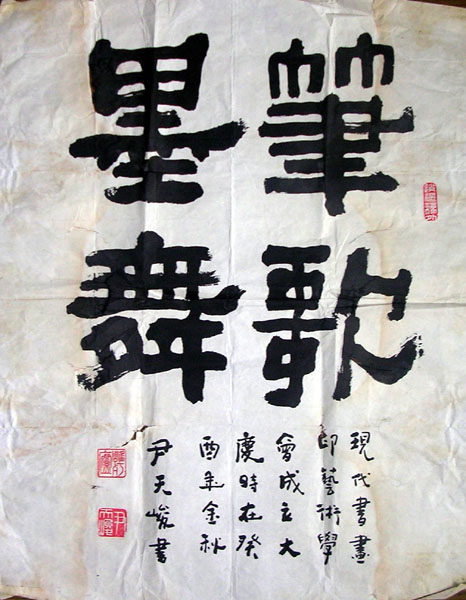 筆歌
墨舞
現代書畫
印藝術學
會成立大
慶時在癸
酉年金秋
尹天峻書